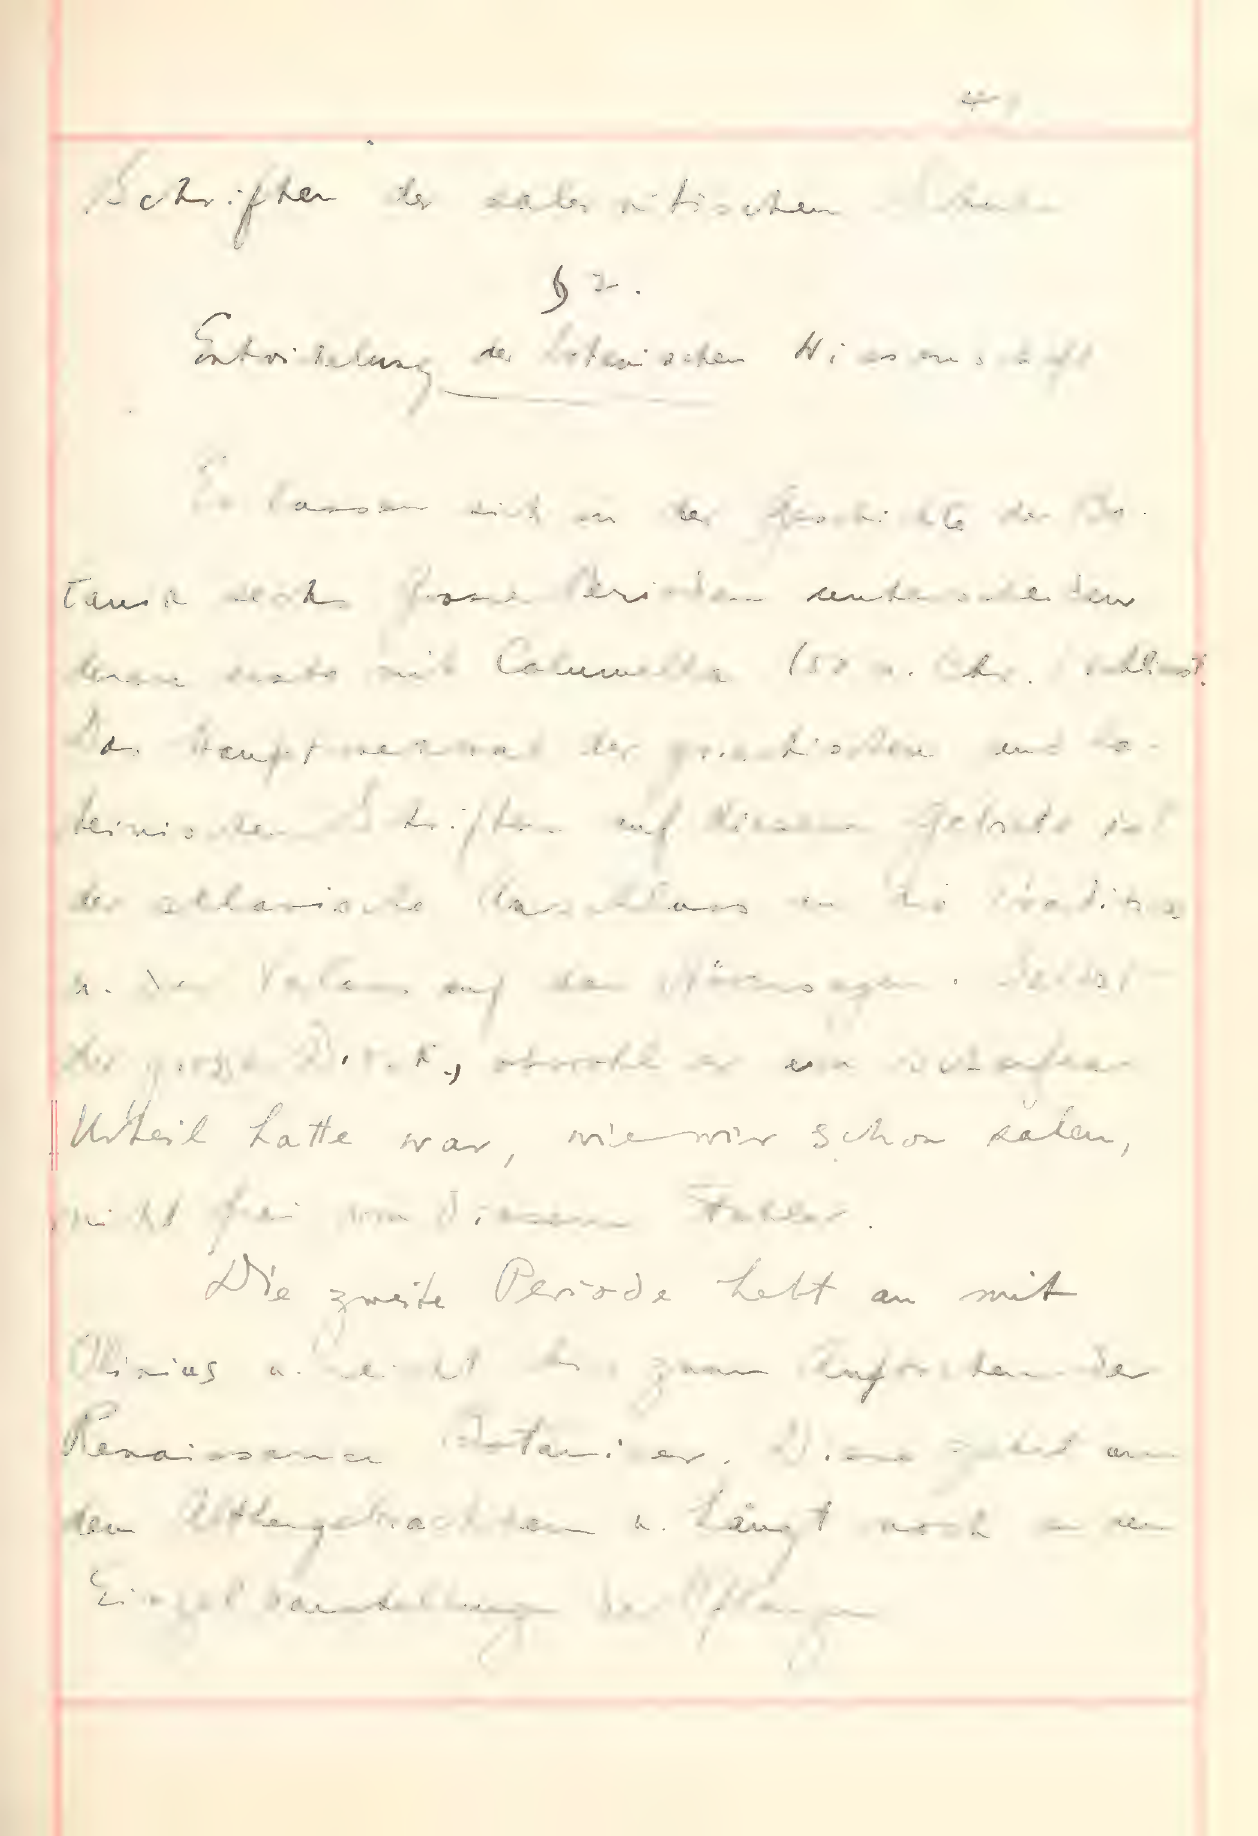 Schriften der salernitischen Schule
§ 2.
Entwickelung der botanischen Wissenschaft
Es lassen sich in der Geschichte der Bo-
tanik sechs grosse Perioden unterscheiden
deren erste mit Columella (50 n. Chr.) schliesst.
Das Hauptmerkmal der griechischen und la-
teinischen Schriften auf diesem Gebiete ist
der sklavische Anschluss an die Tradition
u. der Verlass auf das Hörensagen. Selbst
der grosse obwohl er ein scharfes
Urtheil hatte war, wie wir schon sahen,
nicht frei von diesem Fehler.
Die zweite Periode hebt an mit
Plinius u. reicht bis zum Auftreten der
Renaissance Botaniker. Diese zehrt am
dem Althergebrachten u. hängt noch an der
Einzeldarstellung der Pflanzen